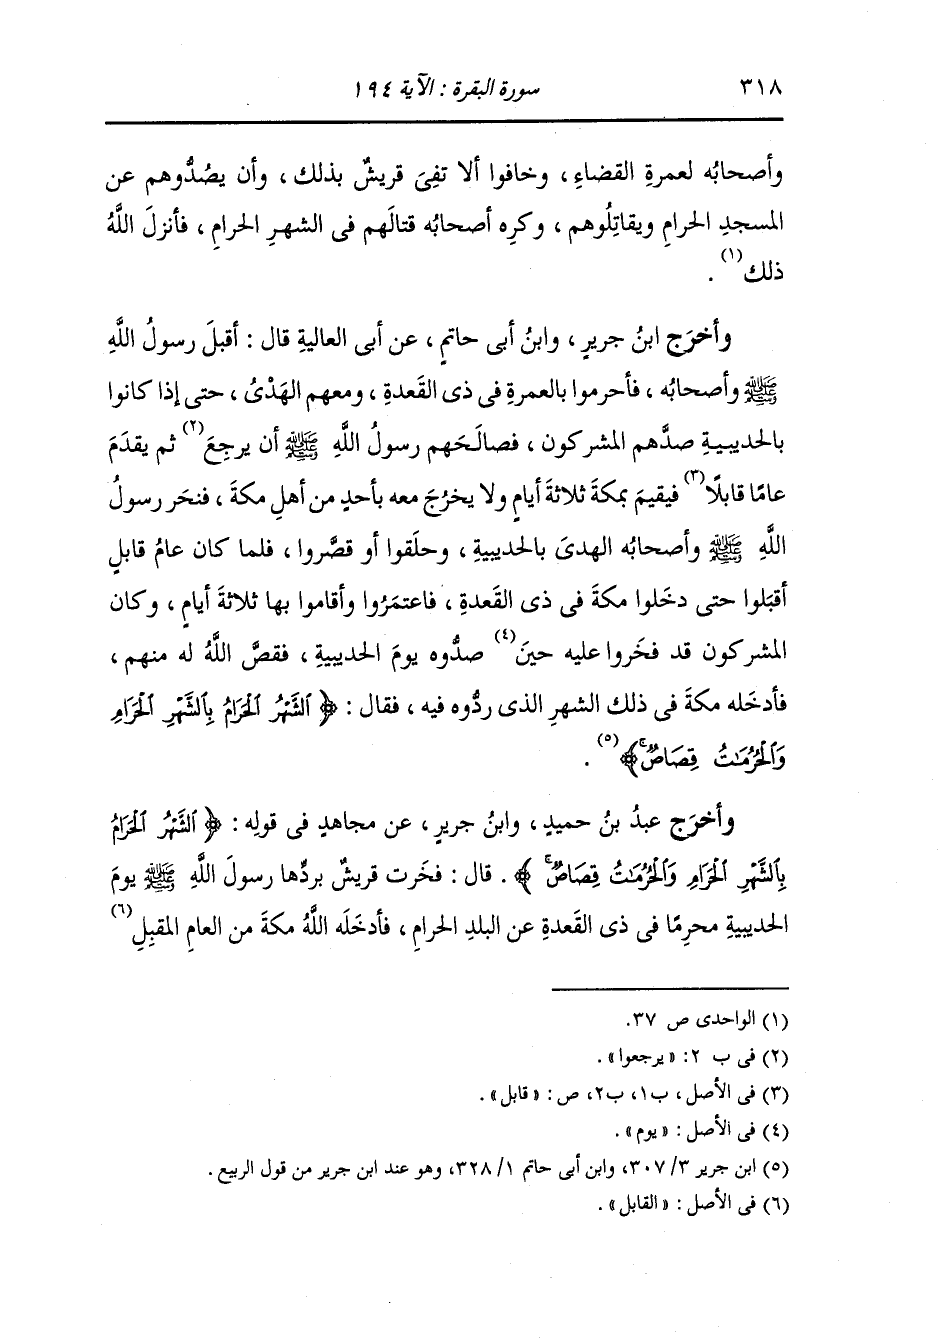 ٣١٨ سورة البقرة : الآية ١٩٤
وأصحابُه لعمرةِ القضاءِ ، وخافوا ألا تفِىَ قريشٌ بذلك ، وأن يصُدُّوهم عن
المسجدِ الحرامِ ويقاتِلُوهم ، وكرِه أصحابُه قتالَهم فى الشهرِ الحرامِ ، فأنزلَ اللَّهُ
ذلك(١) .
وأخرَج ابنُ جريرٍ ، وابنُ أبى حاتمٍ ، عن أبى العاليةِ قال : أقبلَ رسولُ اللَّهِ
ﷺ وأصحابُه ، فأحرموا بالعمرةِ فى ذى القَعدةِ ، ومعهم الهَدْىُ ، حتى إذا كانوا
بالحديبيةِ صدَّهم المشركون ، فصالَحَهم رسولُ اللَّهِ ﷺ أن يرجِعَ(٢) ثم يقدَمَ
عامًا قابلًا(٣) فيقيمَ بمكةَ ثلاثةَ أيامٍ ولا يخرُجَ معه بأحدٍ من أهلِ مكةَ ، فنحَر رسولُ
اللَّهِ ﷺ وأصحابُه الهدىَ بالحديبيةِ ، وحلَقوا أو قصَّروا ، فلما كان عامُ قابلٍ
أقبَلوا حتى دخَلوا مكةَ فى ذى القَعدةِ ، فاعتمَرُوا وأقاموا بها ثلاثةَ أيامٍ ، وكان
المشركون قد فخَروا عليه حينَ(٤) صدُّوه يومَ الحديبيةِ ، فقصَّ اللَّهُ له منهم ،
فأدخَله مكةَ فى ذلك الشهرِ الذى ردُّوه فيه ، فقال : ﴿ ٱلشَّهْرُ ٱلْحَرَامُ بِٱلشَّهْرِ ٱلْحَرَامِ
وَٱلْحُرُمَـٰتُ قِصَاصٌۚ ﴾(٥) .
وأخرَج عبدُ بنُ حميدٍ ، وابنُ جريرٍ ، عن مجاهدٍ فى قولِه : ﴿ ٱلشَّهْرُ ٱلْحَرَامُ
بِٱلشَّهْرِ ٱلْحَرَامِ وَٱلْحُرُمَـٰتُ قِصَاصٌۚ ﴾ . قال : فخَرت قريشٌ بردِّها رسولَ اللَّهِ ﷺ يومَ
الحديبيةِ محرِمًا فى ذى القَعدةِ عن البلدِ الحرامِ ، فأدخَلَه اللَّهُ مكةَ من العامِ المقبِلِ(٦)
(١) الواحدى ص ٣٧.
(٢) فى ب ٢: « يرجعوا » .
(٣) فى الأصل ، ب١، ب٢، ص : « قابل » .
(٤) فى الأصل : « يوم » .
(٥) ابن جرير ٣/ ٣٠٧، وابن أبى حاتم ١/ ٣٢٨، وهو عند ابن جرير من قول الربيع .
(٦) فى الأصل : « القابل » .